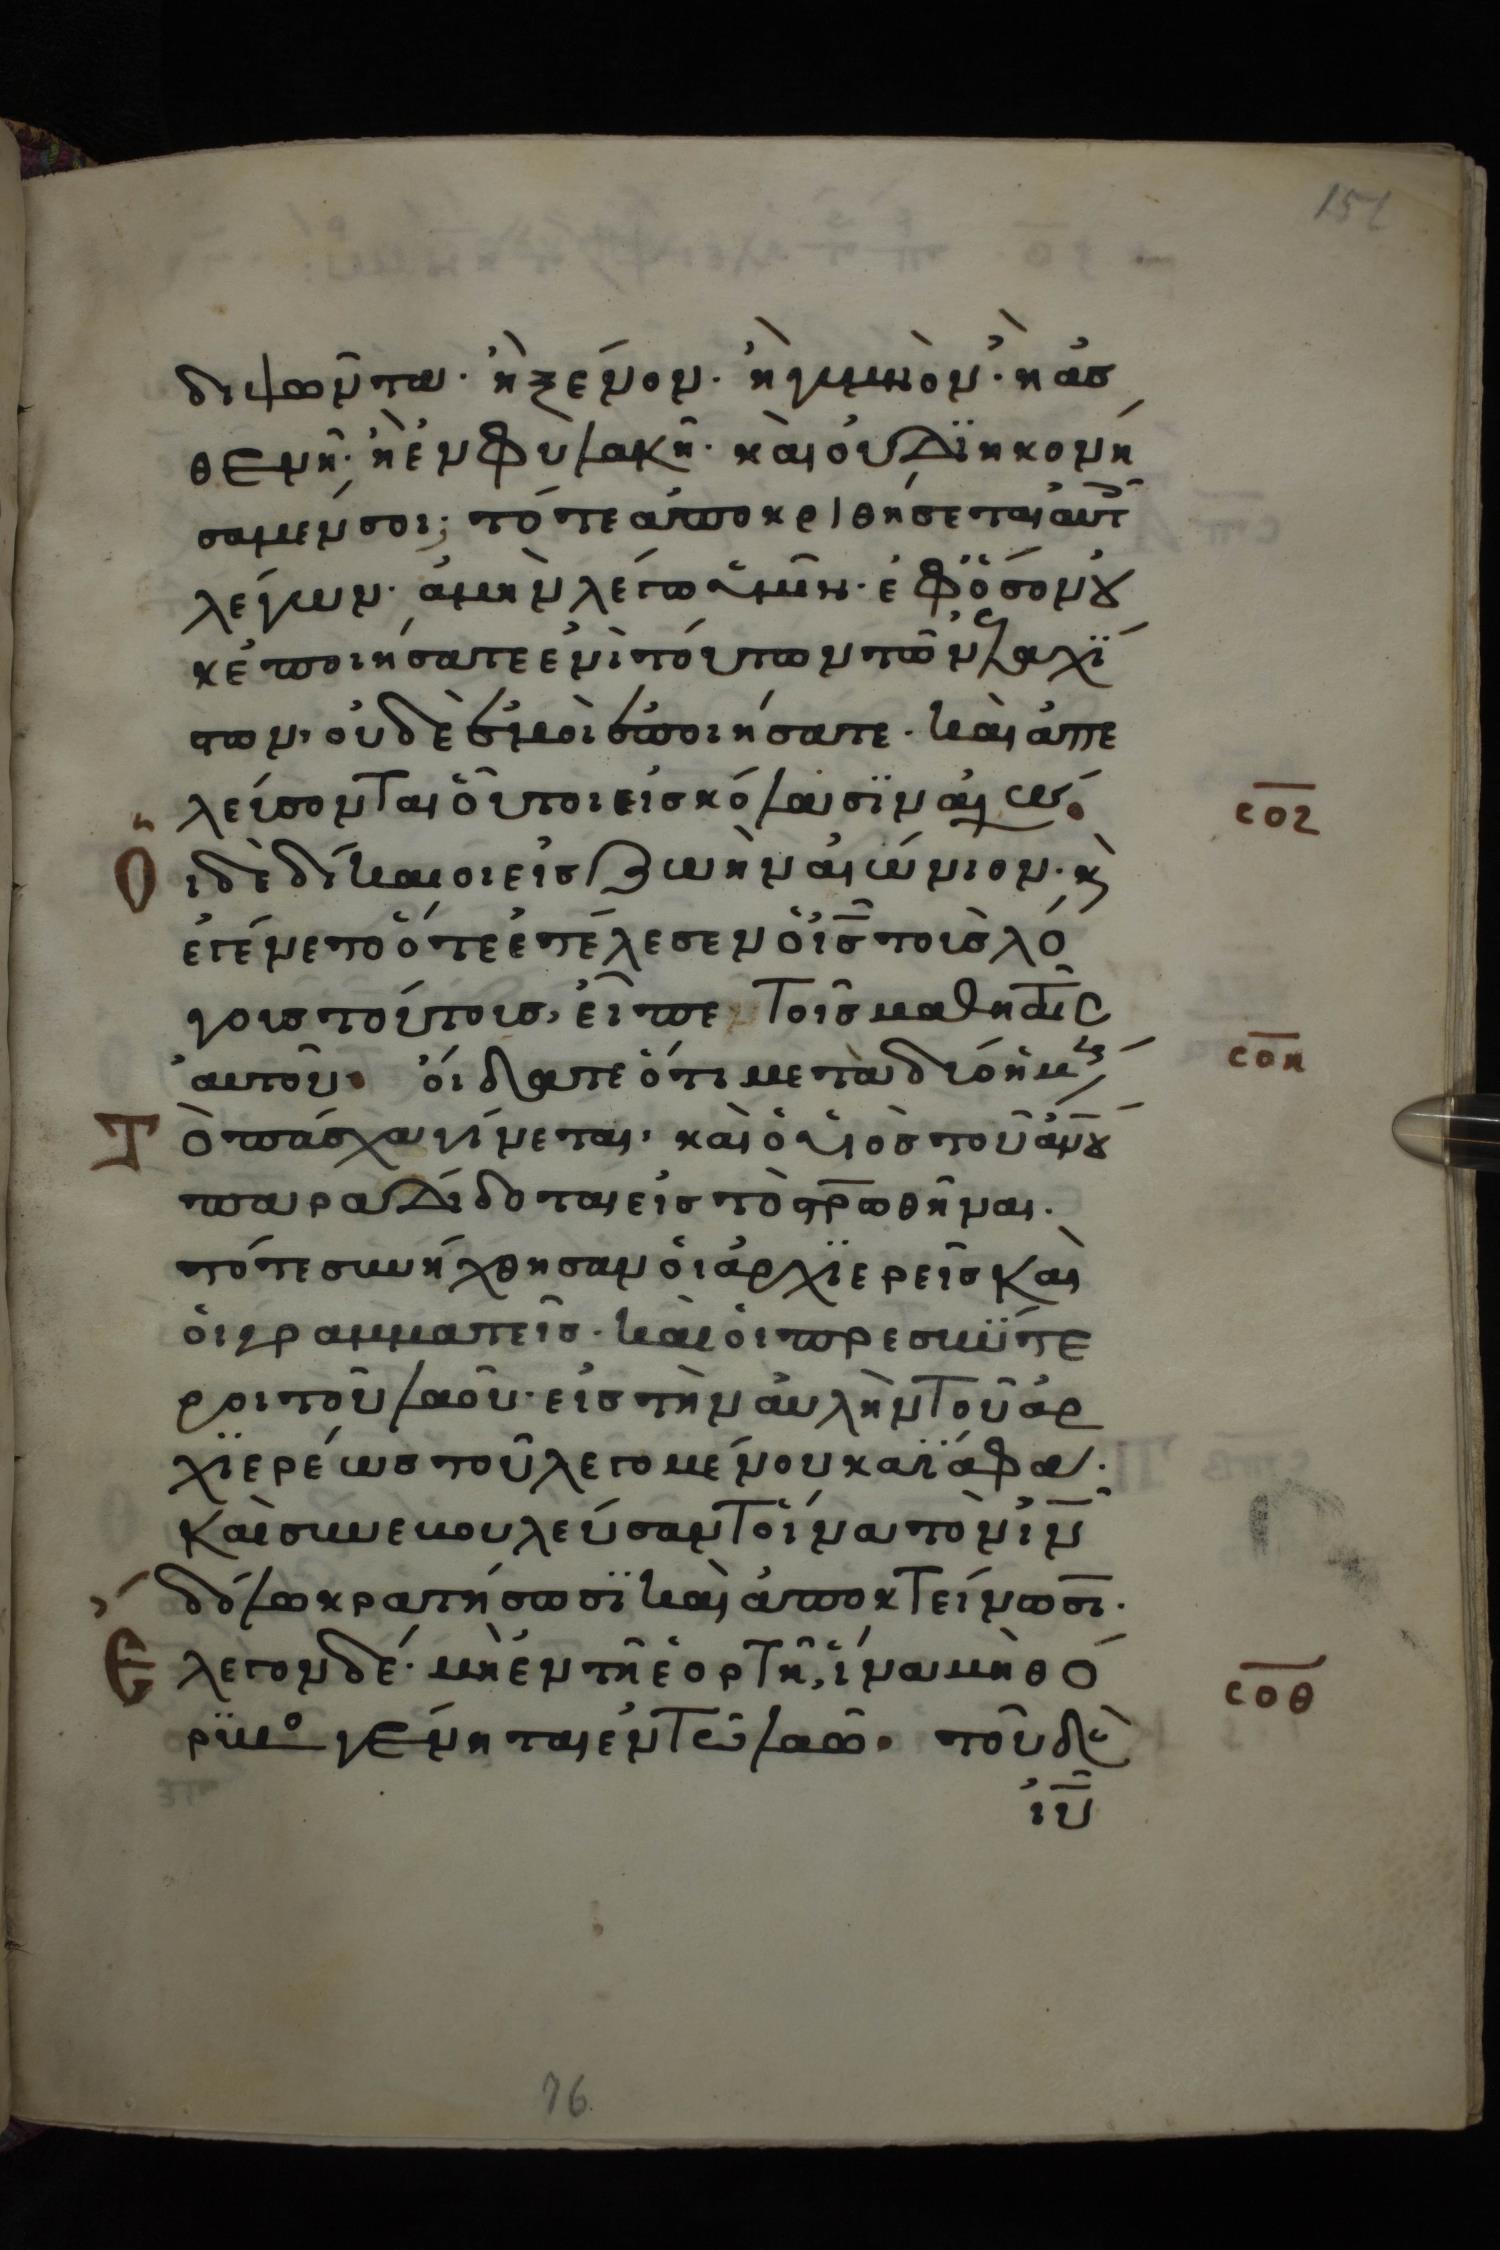 151
διψῶντα· ἢ ξένον· ἢ γυμνὸν· ἢ ἀσ
θενῆ· ἢ ἐν φυλακῆ· καὶ οὐ διηκονή
σαμέν σοι; τότε ἀποκριθήσεται αὐτ
λέγων· ἀμὴν λέγω ὑμῖν· ἐφ ὅσον οὐ
κ ἐποιήσατε ἑνὶ τούτων τῶν ἐλαχί
στων, οὐδὲ ἐμοὶ ἐποιήσατε· καὶ ἀπε
λεύσονται οὗτοι εἰς κόλασϊν αἰών.
Ο
ι δὲ δίκαιοι εἰς ζωὴν αἰώνιον· κ
ἐγένετο ὅτε ἐτέλεσεν ὁ ις τοὺς λό
γους τούτους, εἶπε τοῖς μαθηταῖς
αὐτοῦ· οἴδατε ὅτι μετὰ δύο ἡμ
Τ
ὸ πάσχα γίνεται, καὶ ὁ υἱὸς τοῦ ἀνου
παραδίδοται εἰς τὸ στρωθῆναι.
τότε συνήχθησαν οἱ ἀρχϊερεῖς καὶ
οἱ γραμματεῖς· καὶ οἱ πρεσβύτε
ροι τοῦ λαοῦ· εἰς τὴν αὐλὴν τοῦ ἀρ
χϊερέως τοῦ λεγομένου καϊάφα·
καὶ συνεβουλεύσαντο ἵνα τὸν ιν
δόλω κρατήσωσϊ καὶ ἀποκτείνωσι·
Ε
λεγον δέ· μὴ ἐν τῆ ἑορτῆ, ἵνα μὴ θό
ρϋβο γένηται ἐν τῶ λαῶ· τοῦ δὲ
ιυ
σοζ
σοη
σοθ
76